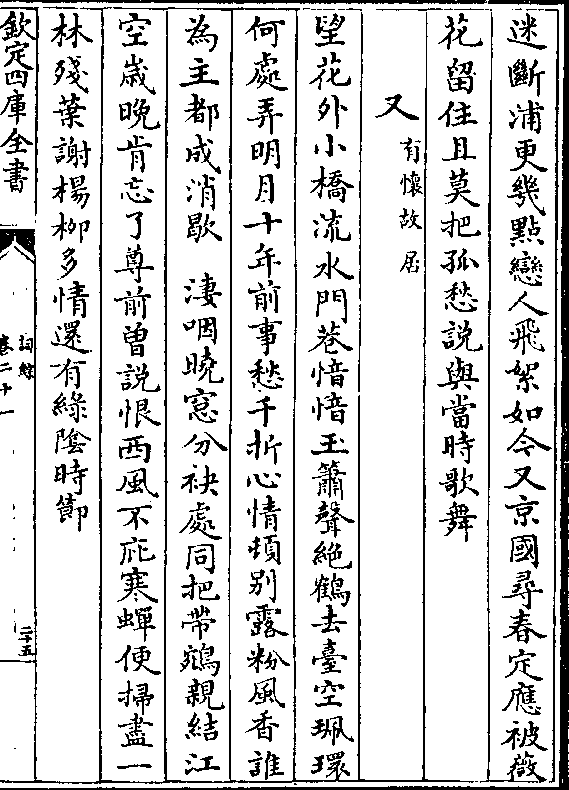 迷斷浦更幾點戀人飛絮如今又京國尋春定應被薇
花留住且莫把孤愁說與當時歌舞
又有懷故居
望花外小橋流水門巷愔愔玉簫聲絶鶴去臺空珮環
何處弄明月十年前事愁千折心情頓别露粉風香誰
為主都成消歇　淒咽曉窓分袂處同把帶鴛親結江
空歲晚肯忘了尊前曾說恨西風不庇寒蟬便掃盡一
林殘葉謝楊栁多情還有綠陰時節
欽定四庫全書
詞綜
卷二十一
二十五